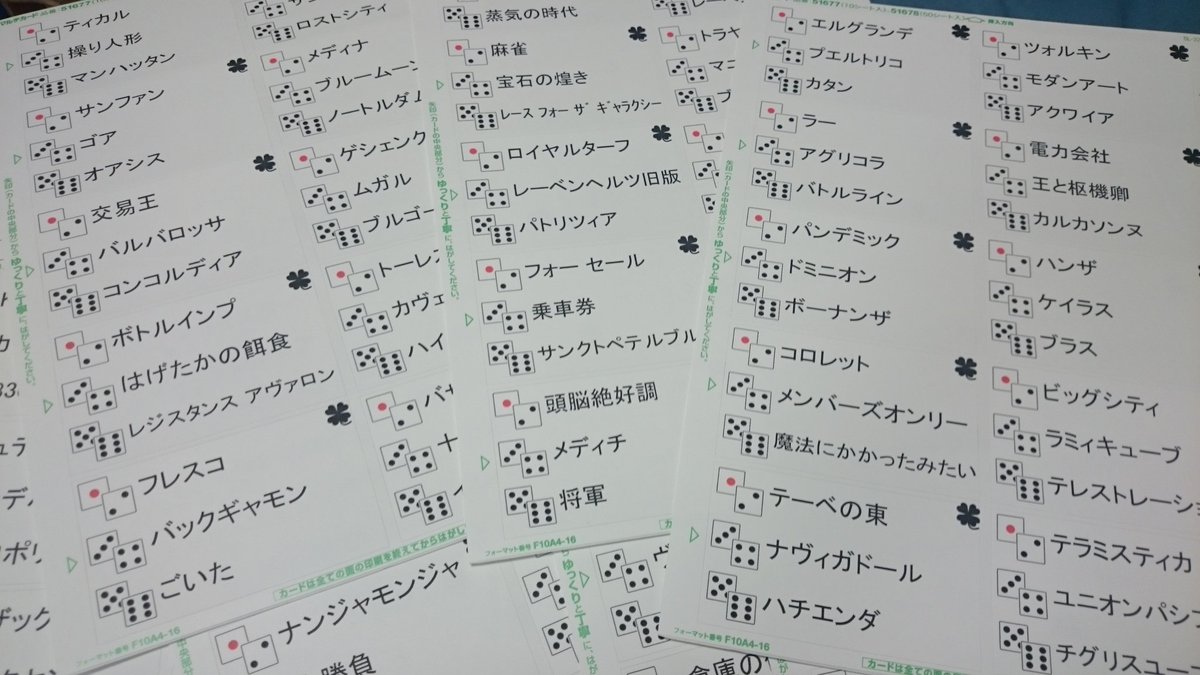 マルチカード 品番 51677
ティカル
操り人形
マンハッタン
サンファン
ゴア
オアシス
交易王
バルバロッサ
コンコルディア
ボトルインプ
はげたかの餌食
レジスタンス アヴァロン
フレスコ
バックギャモン
ごいた
矢印(カードの中央部分)からゆっくりと丁寧に、はがしてください。
フォーマット番号 F10A4-16
カードは全ての面の印刷を終えてからはがし
ロストシティ
メディナ
ブルームーン
ノートルダム
ゲシェンク
ムガル
ブルゴー
トーレス
カヴェ
ハイ
蒸気の時代
麻雀
宝石の煌き
レース フォー ザ ギャラクシー
ロイヤルターフ
レーベンヘルツ旧版
パトリツィア
フォー セール
乗車券
サンクトペテルブル
頭脳絶好調
メディチ
将軍
フォーマット番号 F10A4-16
トラヤ
マニ
品番 51677(10シート入) 51678(50シート入) 挿入方向
エルグランデ
プエルトリコ
カタン
ラー
アグリコラ
バトルライン
パンデミック
ドミニオン
ボーナンザ
コロレット
メンバーズオンリー
魔法にかかったみたい
テーベの東
ナヴィガドール
ハチエンダ
矢印(カードの中央部分)からゆっくりと丁寧に、はがしてください。
フォーマット番号 F10A4-16
カードは全ての面
ツォルキン
モダンアート
アクワイア
電力会社
王と枢機卿
カルカソンヌ
ハンザ
ケイラス
ブラス
ビッグシティ
ラミィキューブ
テレストレーショ
テラミスティカ
ユニオンパシフ
チグリスユー
ナンジャモンジャ
勝負
倉庫の